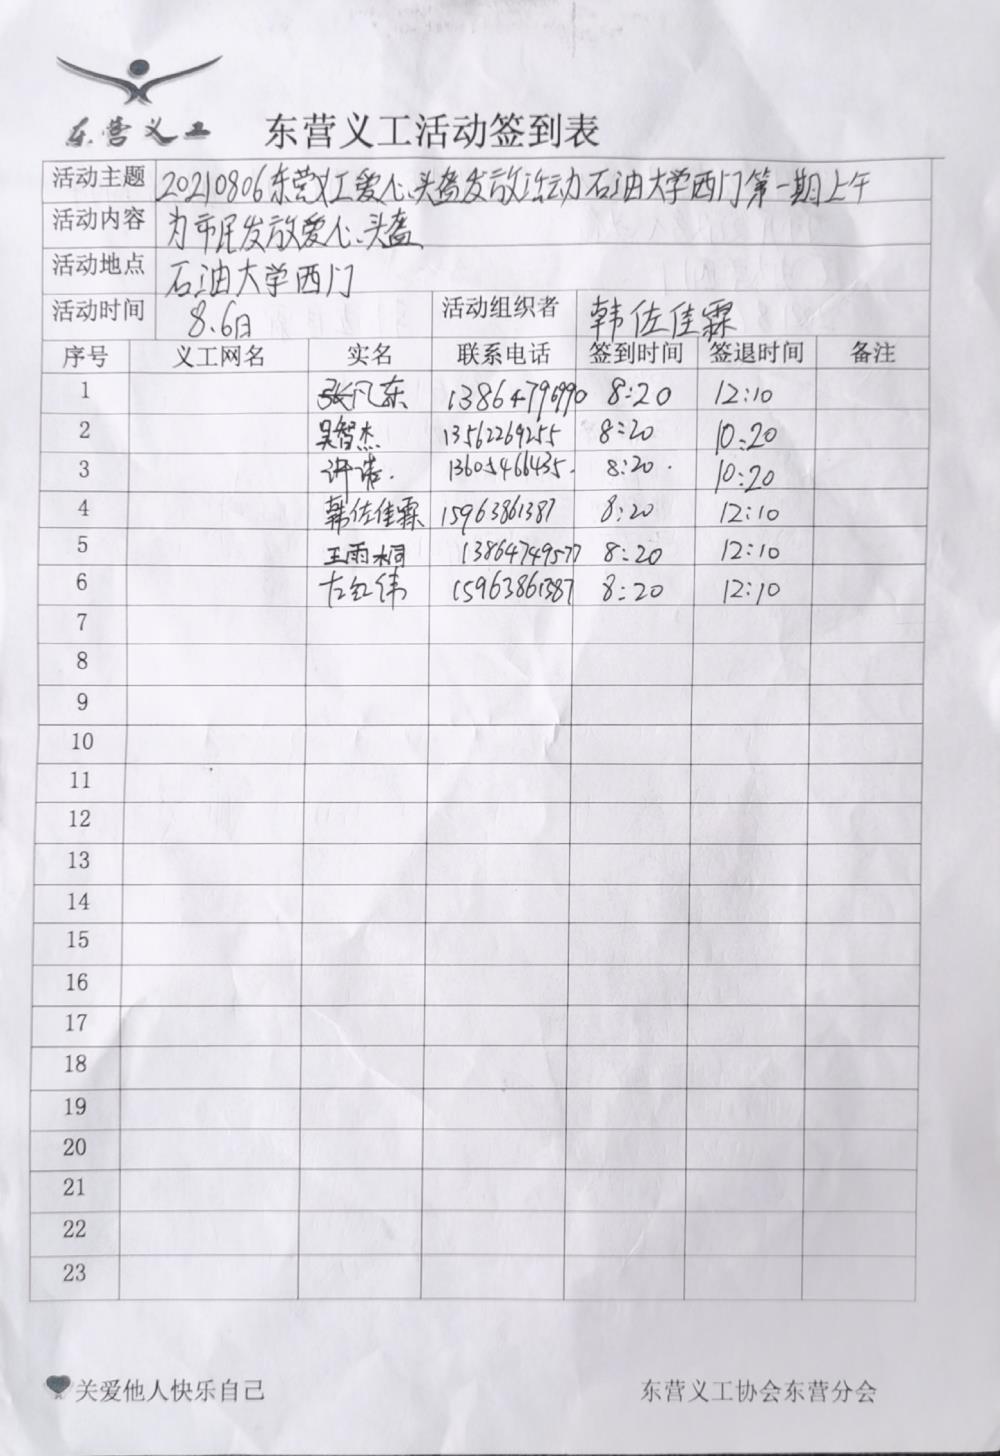 东营义工 东营义工活动签到表
活动主题 20210806东营义工爱心头盔发放活动石油大学西门第一期上午
活动内容 为市民发放爱心头盔
活动地点 石油大学西门
活动时间 8.6日 活动组织者 韩佐佳霖
序号 义工网名 实名 联系电话 签到时间 签退时间 备注
1 张凡东 13864796990 8:20 12:10
2 吴智杰 13562269255 8:20 10:20
3 许诺. 13605466435. 8:20. 10:20
4 韩佐佳霖 15963861387 8:20 12:10
5 王雨桐 13864749577 8:20 12:10
6 左红伟 15963861387 8:20 12:10
7
8
9
10
11
12
13
14
15
16
17
18
19
20
21
22
23
关爱他人快乐自己 东营义工协会东营分会